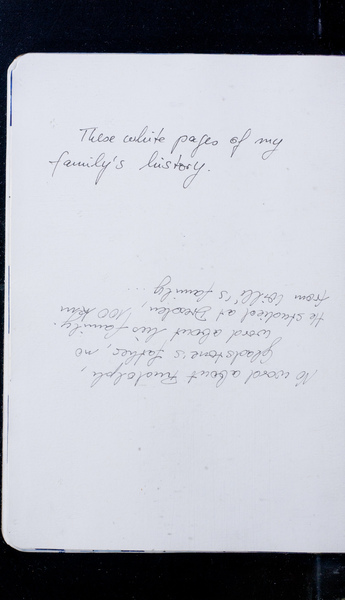 These white pages of my
family's history.
No word about Rudolph,
Gladstone's father, no
word about his family.
He studied at Dresden, 100 km
from Willi's family ...